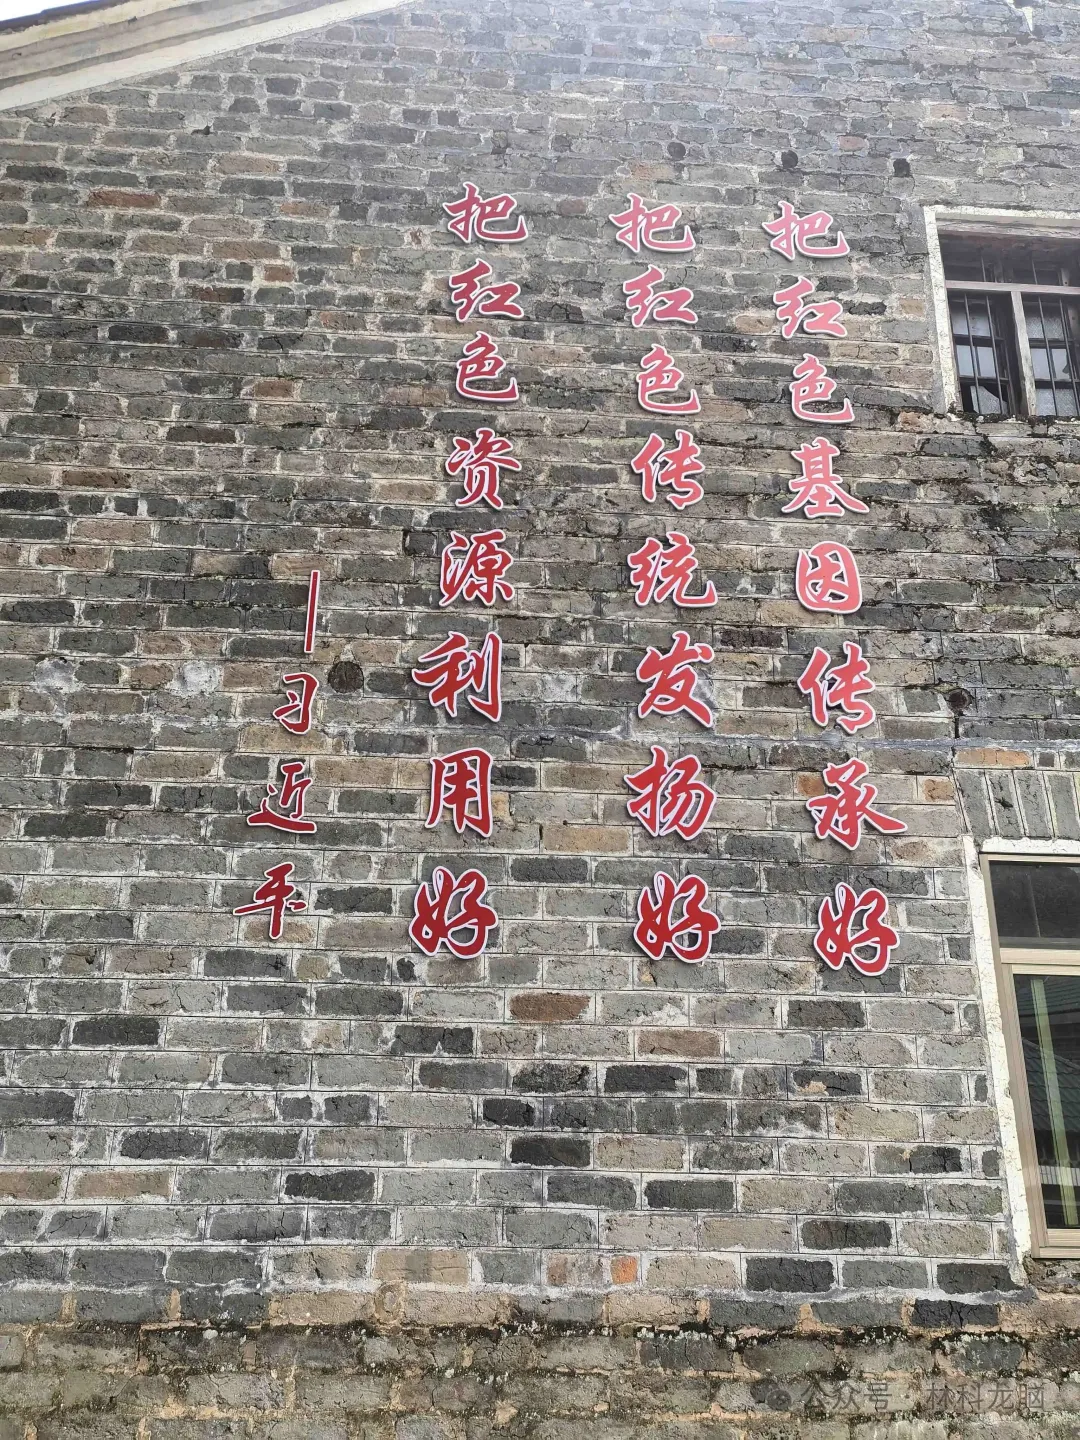 把红色资源利用好
把红色传统发扬好
把红色基因传承好
—习近平
公众号·林科龙脑